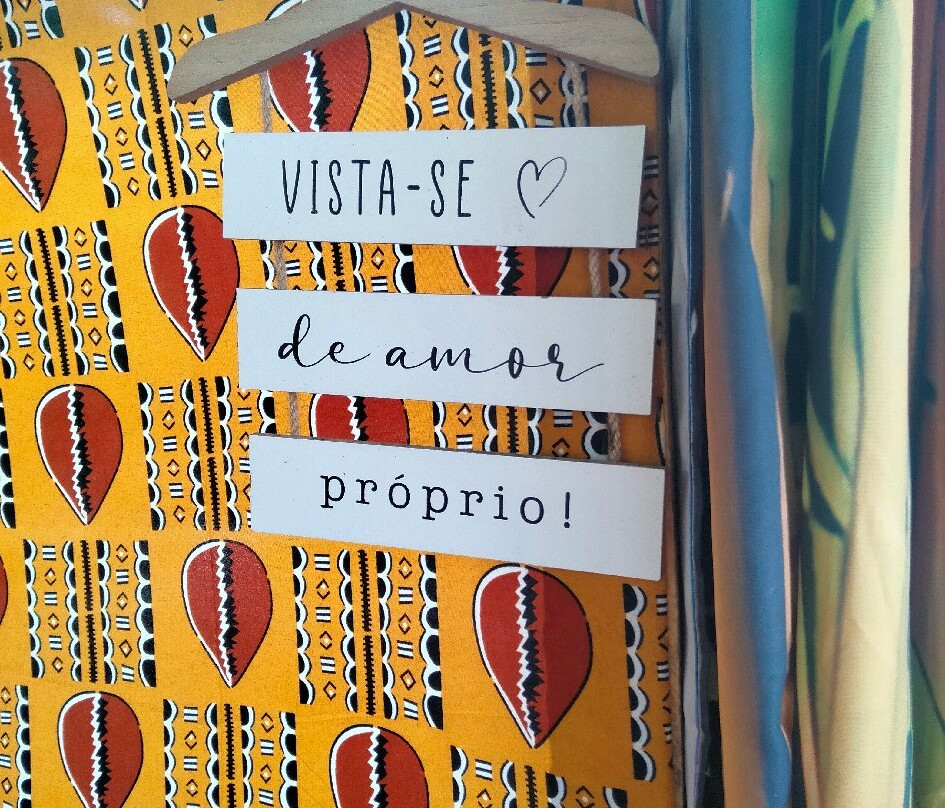 VISTA-SE ♡
de amor
próprio!